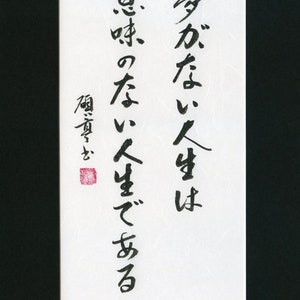 夢がない人生は
意味のない人生である
碩亭書